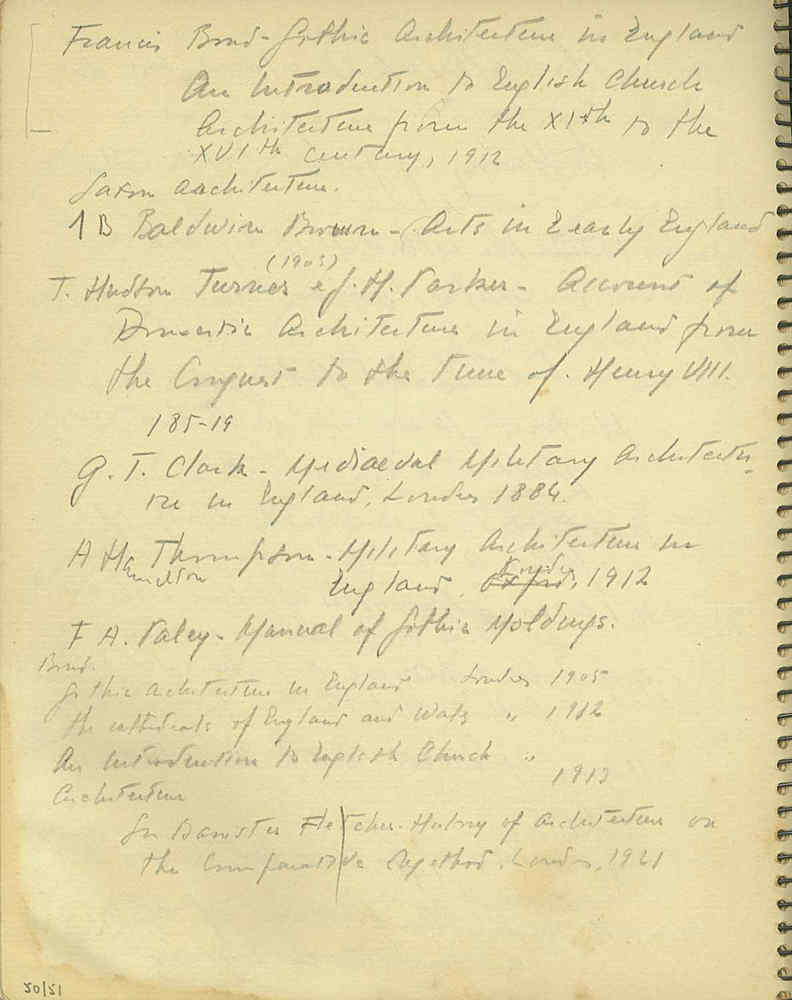 Francis Bond - Gothic Architecture in England
An Introduction to English Church
Architecture from the XIth to the
XVIth century, 1912
Saxon Architecture.
1 B Baldwin Brown - Arts in Early England
(1903)
T. Hudson Turner e J. H. Parker - Account of
Domestic Architecture in England from
the Conquest to the time of Henry VIII.
185-19
G. T. Clark - Mediaeval Military Architectu-
re in England, Londres 1884.
A Hamilton Thompson - Military Architecture in
England, Londres, 1912
F A. Paley - Manual of Gothic Moldings.
Bond.
Gothic Architecture in England Londres 1905
the cathedrals of England and Wales " 1912
An Introduction to English Church "
1913
Architecture
Sir Banister Fletcher - History of Architecture on
the Comparative Method. Londres, 1921
20/21